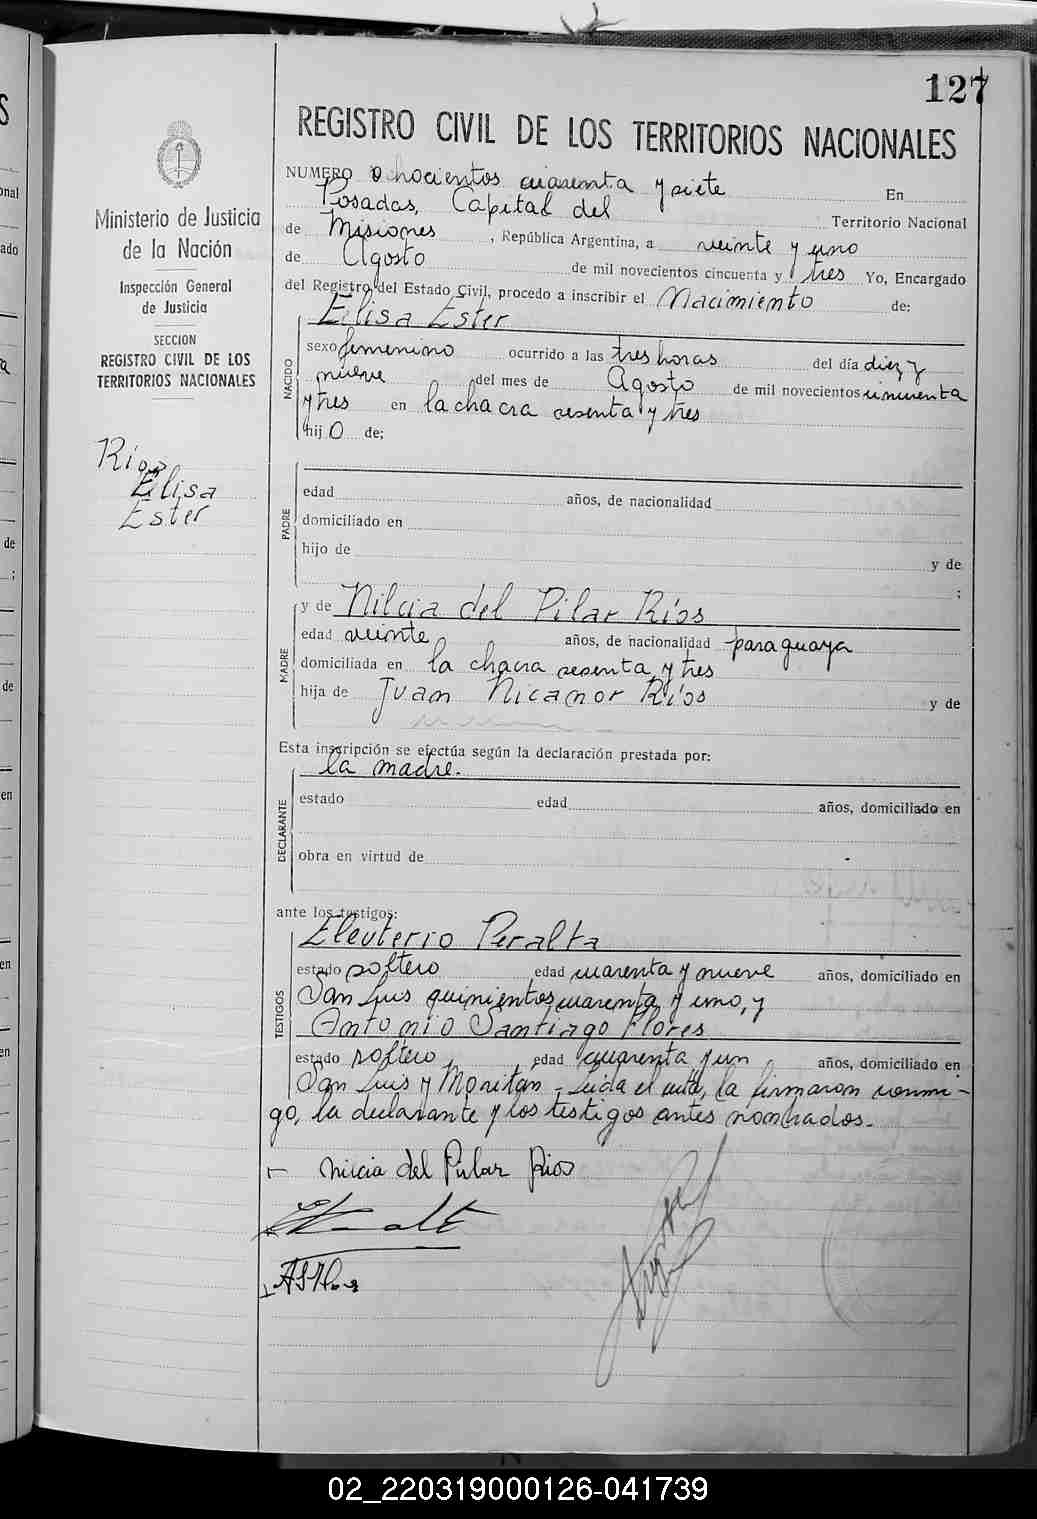 127
REGISTRO CIVIL DE LOS TERRITORIOS NACIONALES
Ministerio de Justicia
de la Nación
Inspección General
de Justicia
SECCION
REGISTRO CIVIL DE LOS
TERRITORIOS NACIONALES
Ríos
Elisa
Ester
NUMERO Ochocientos cuarenta y siete En
Posadas, Capital del Territorio Nacional
de Misiones, República Argentina, a veinte y uno
de Agosto de mil novecientos cincuenta y tres Yo, Encargado
del Registro del Estado Civil, procedo a inscribir el Nacimiento de:
NACIDO
Elisa Ester
sexo femenino ocurrido a las tres horas del día diez y
nueve del mes de Agosto de mil novecientos cincuenta
y tres en la chacra sesenta y tres
hijo de;
PADRE
edad años, de nacionalidad
domiciliado en
hijo de y de
;
MADRE
y de Nilcia del Pilar Ríos
edad veinte años, de nacionalidad paraguaya
domiciliada en la chacra sesenta y tres
hija de Juan Nicanor Ríos y de
Esta inscripción se efectúa según la declaración prestada por:
DECLARANTE
la madre.
estado edad años, domiciliado en
obra en virtud de
ante los testigos:
TESTIGOS
Eleuterio Peralta
estado soltero edad cuarenta y nueve años, domiciliado en
San Luis quinientos cuarenta y uno, y
Antonio Santiago Flores
estado soltero, edad cuarenta y un años, domiciliado en
San Luis y Moritan - Leida el acta, la firmaron conmi-
go, la declarante y los testigos antes nombrados.-
Nicia del Pilar Rios
02_220319000126-041739